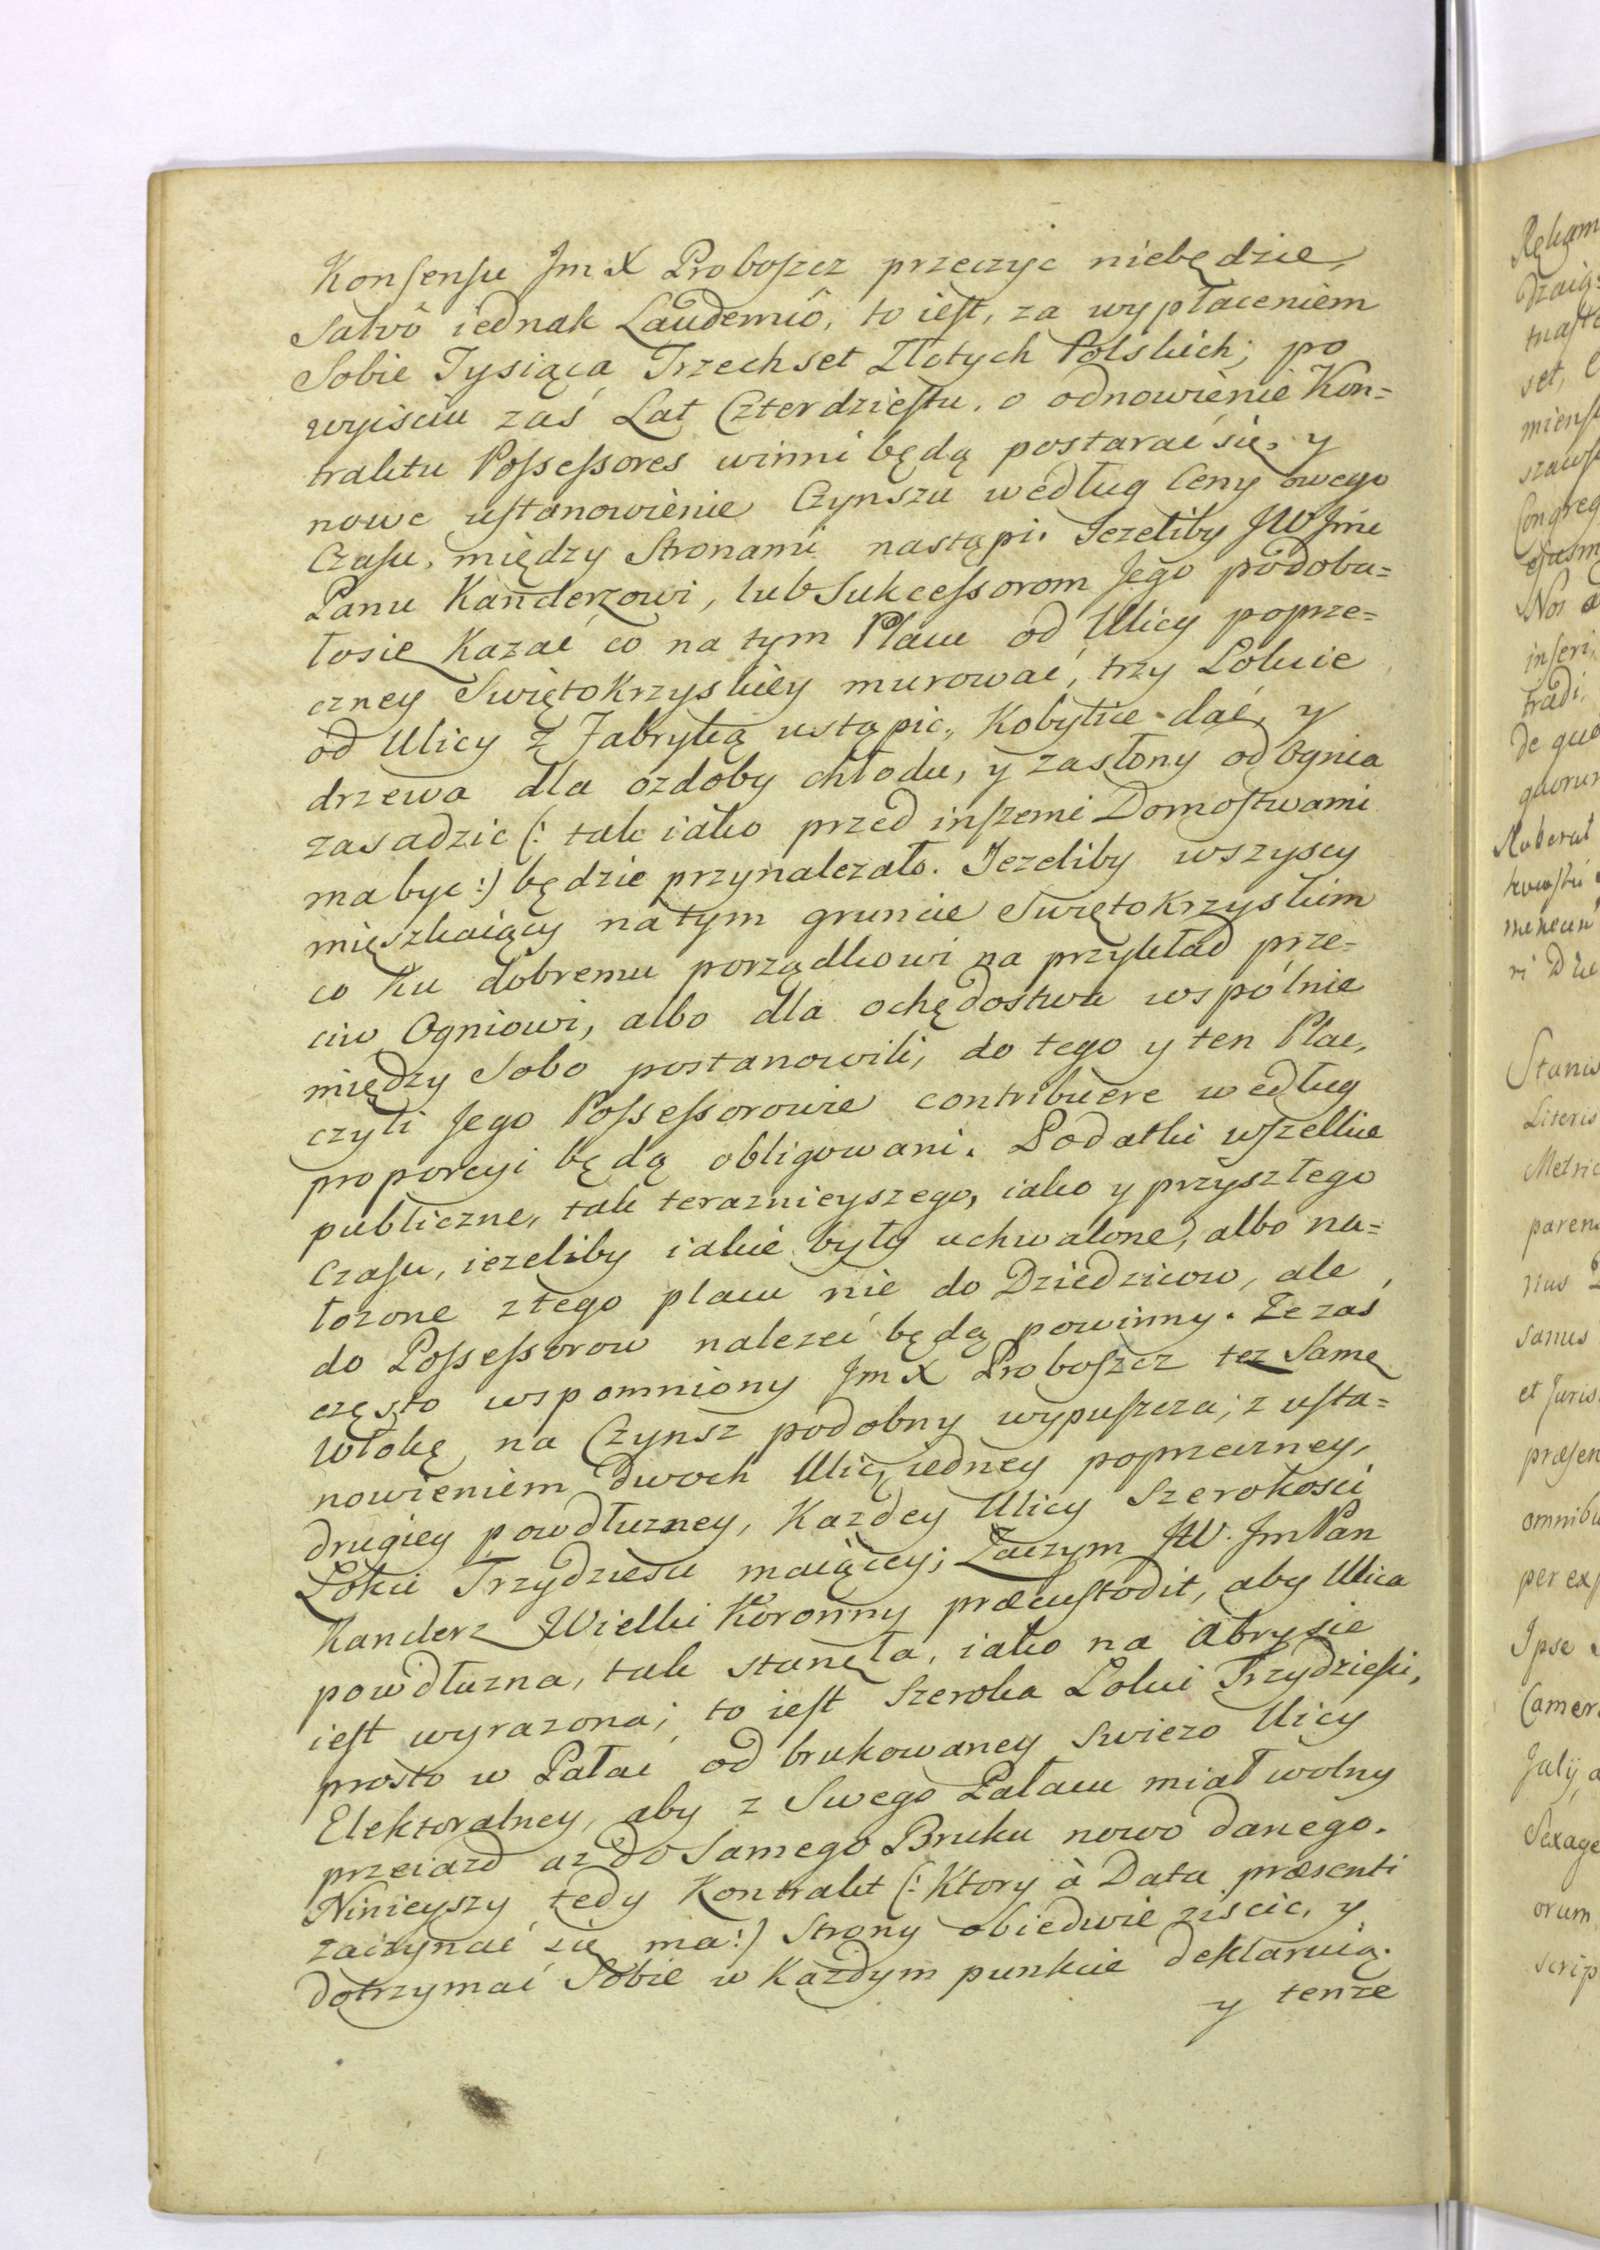 Konsensu Jm X Proboszcz przeczyc niebędzie,
Salvô iednak Laudemiô, to iest, za wypłaceniem
Sobie Tysiąca Trzechset Złotych Polskich; po
wyiściu zaś Lat Czterdziestu, o odnowienie Kon=
traktu Possessores winni będą postarać się, y
nowe ustanowienie Czynszu według Ceny owego
Czasu, między Stronami nastąpi. Jezeliby JW Jmu
Panu Kanclerzowi, lub Sukcessorom Jego podoba=
łosie Kazać co na tym Placu od Ulicy poprze=
czney Swiętokrzyskiey murować, trzy Lokcie
od Ulicy z Fabryką ustąpic, Kobylice dać, y
drzewa dla ozdoby chłodu, y zasłony od Ognia
zasadzic (: tak iako przed inszemi Domostwami
ma byc :) będzie przynalezało. Jezeliby wszyscy
mięszkaiący na tym gruncie Swiętokrzyskim
co Ku dobremu porządkowi na przykład prze=
ciw Ogniowi, albo dla ochędostwa wspólnie
między Sobo postanowili, do tego y ten Plac,
czyli Jego Possessorowie contribuere według
proporcyi będą obligowani. Podatki wszelkie
publiczne, tak teraznieyszego, iako y przyszłego
Czasu, iezeliby iakie były uchwalone, albo na=
łozone z tego placu nie do Dziedzicow, ale
do Possessorow nalezeć będą powinny. Ze zaś
często wspomniony Jm X Proboszcz tez Samę
Włokę na Czynsz podobny wypuszcza; z usta=
nowieniem dwoch Ulic, iedney poprzeczney,
drugiey powdłuzney, Kazdey Ulicy Szerokości
Lokci Trzydziesci maiącey; Zaczym JW. Jm Pan
Kanclerz Wielki Koronny præcustodit, aby Ulica
powdłuzna, tak stanęła, iako na abrysie
iest wyrazona; to iest Szeroka Lokci Trzydzieści,
prosto w Pałac od brukowaney Swiezo Ulicy
Elektoralney, aby z Swego Pałacu miał wolny
przeiazd az do Samego Bruku nowo danego.
Ninieyszy tedy Kontrakt (: Ktory à Data præsenti
zaczynać się ma :) Strony obiedwie ziscic, y
dotrzymać Sobie w Kazdym punkcie deklaruią.
y tenze